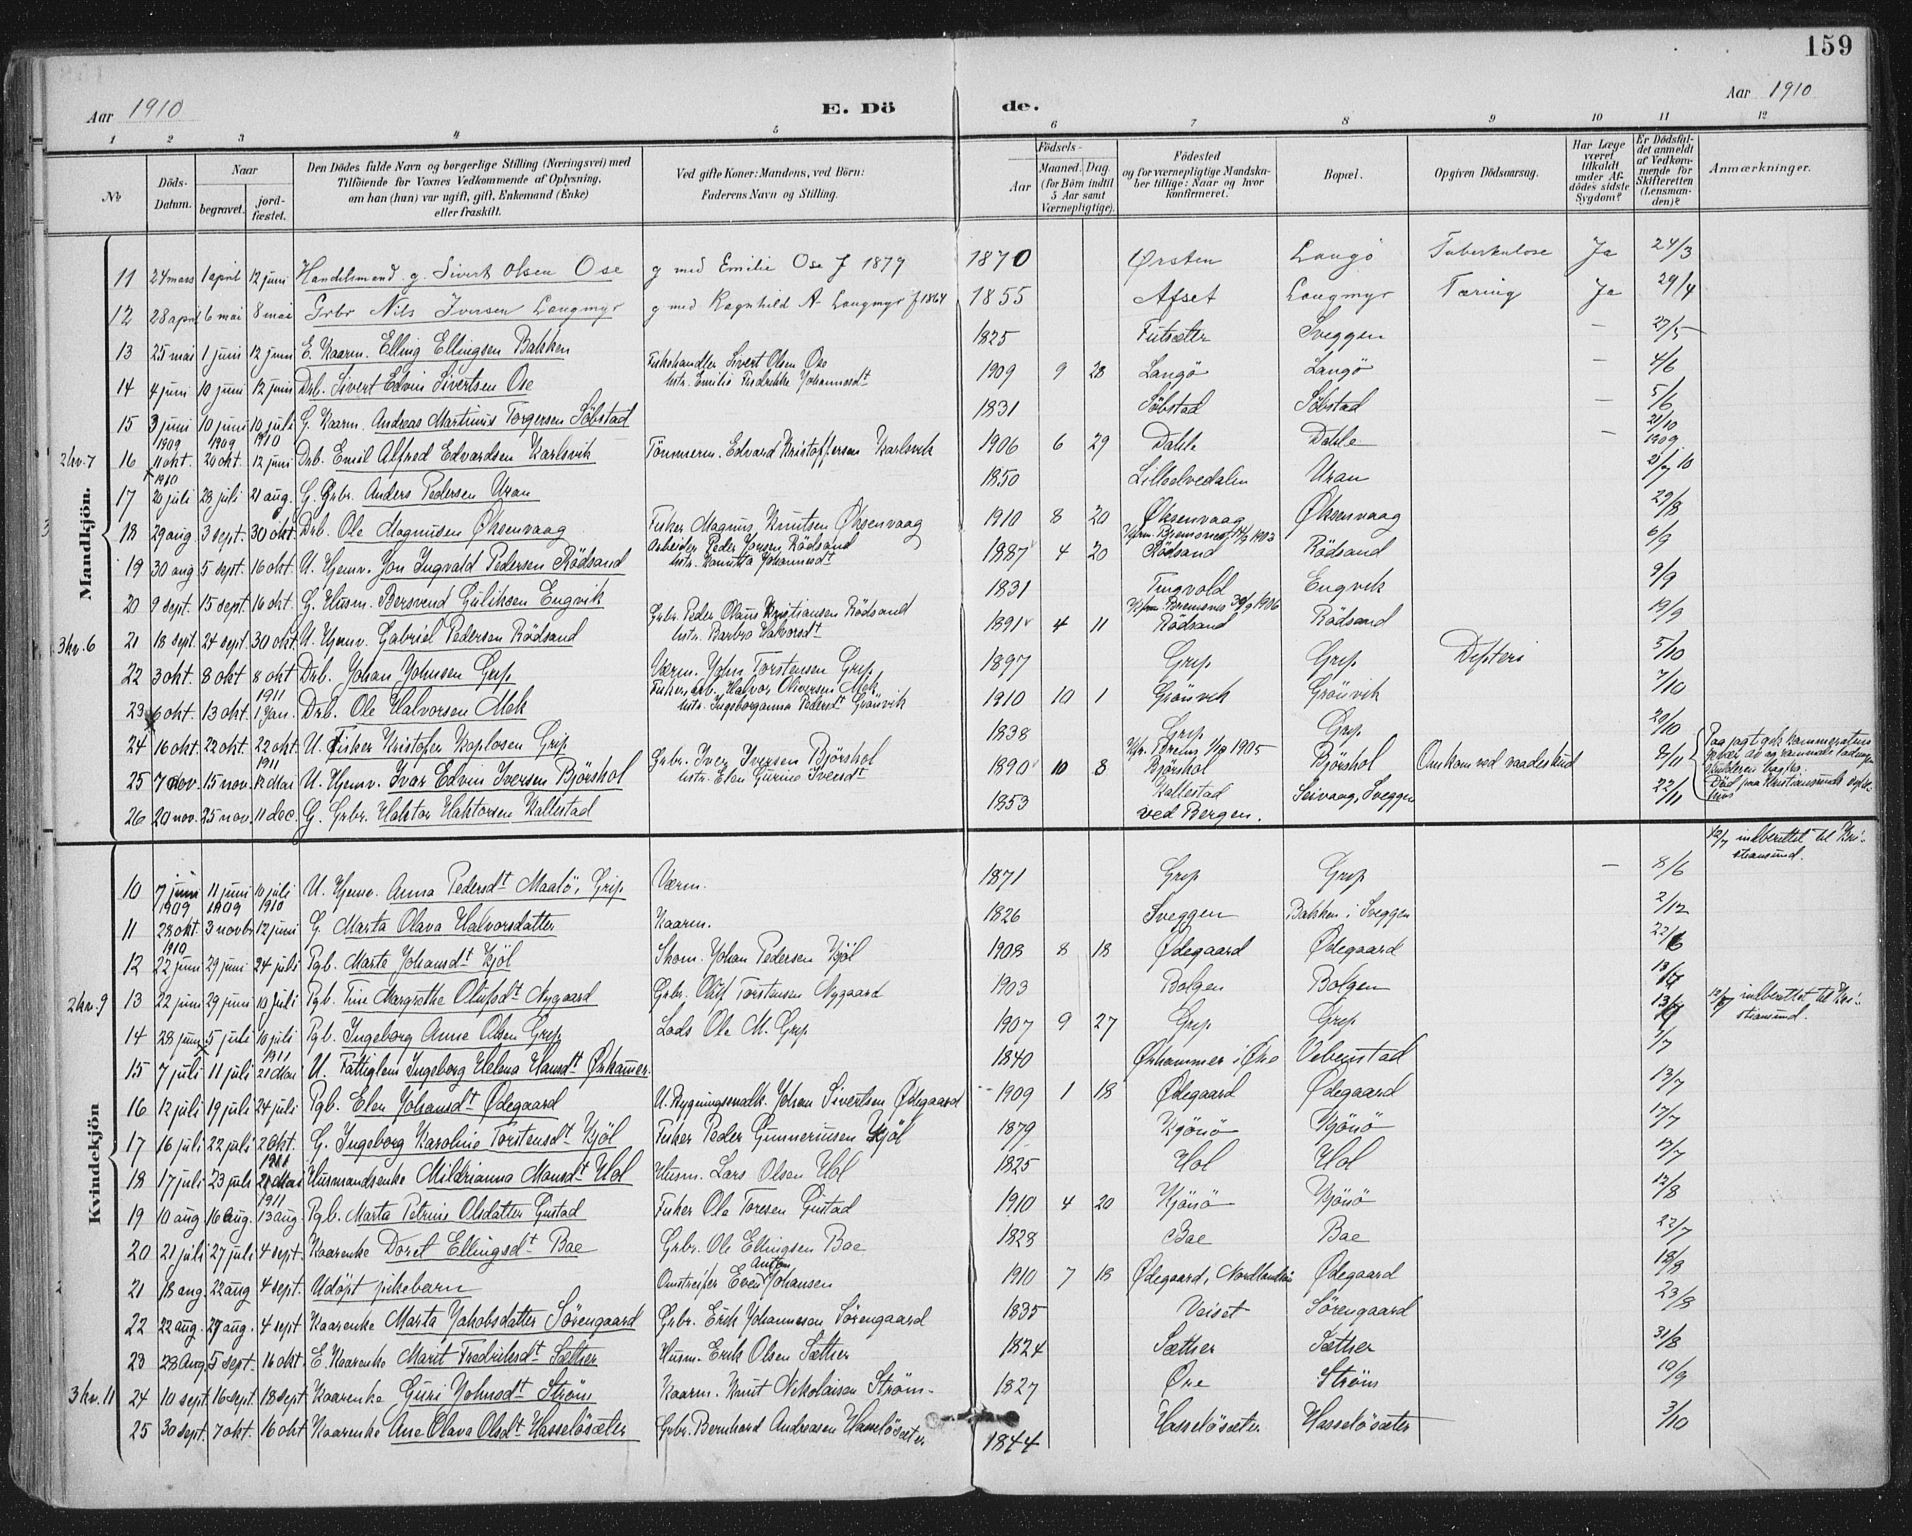 159
Aar 1910 E. Dö de. Aar 1910
1 2 3 4 5 6 7 8 9 10 11 12
No Döds-Datum. Naar begravet. jord-fæstet. Den Dödes fulde Navn og borgerlige Stilling (Næringsvei) med Tilföiende for Voxnes Vedkommende af Oplysning, om han (hun) var ugift, gift, Enkemand (Enke) eller fraskilt. Ved gifte Koner: Mandens, ved Börn: Faderens Navn og Stilling. Födsels- Aar Maaned. Dag. (for Börn indtil 5 Aar samt Værnepligtige). Födested og for værnepligtige Mandska-ber tillige: Naar og hvor konfirmeret. Bopæl. Opgiven Dödsaarsag. Har Læge været tilkaldt under Af-dödes sidste Sygdom? Er Dödsfal-det anmeldt af Vedkom-mende for Skifteretten (Lensman-den)? Anmærkninger.
Mandkjön.
11 24 mars 1 april 12 juni Handelsmand g. Sivert Olsen Ose g med Emilie Ose f 1879 1870 Ørsten Langø Tuberkulose Ja 24/3
12 28 april 6 mai 8 mai Grbr Nils Iversen Langmyr g med Ragnhild A. Langmyr f 1864 1855 Afset Langmyr Tæring Ja 29/4
13 25 mai 1 juni 12 juni E. Kaarm. Elling Ellingsen Bakken 1825 Futsætter Sveggen – 27/5
14 4 juni 10 juni 12 juni Drb. Sivert Edvin Sivertsen Ose Fiskehandler Sivert Olsen Ose hstr. Emilie Fredrikke Johannesdt 1909 9 28 Langø Langø – 4/6
15 3 juni 10 juni 10 juli G. Kaarm. Andreas Martinus Torgersen Söbstad 1831 Söbstad Söbstad – 5/6
2 kv. 7 16 1909 11 okt. 1909 20 okt. 1910 12 juni Drb. Emil Alfred Edvardsen Karlsvik Tömmerm. Edvard Kristoffersen Karlsvik 1906 6 29 Dahle Dahle – 21/10 1909
17 1910 20 juli 28 juli 21 aug. G. Grbr. Anders Pedersen Uran 1850 Lilleelvedalen Uran 21/7 10
18 29 aug 3 sept. 30 okt. Drb. Ole Magnusen Øksenvaag Fisker Magnus Knutsen Øksenvaag 1910 8 20 Øksenvaag Øksenvaag 29/8
19 30 aug 5 sept. 16 okt. U. Hjemv. Jon Ingvald Pedersen Rödsand Arbeider Peder Jonsen Rödsand hstr. Johannesdt 1887 4 20 Kfrm. Bremsnes 1903 Rödsand Rödsand 6/9
20 9 sept. 15 sept 16 okt. G. Husm. Bersvend Guliksen Engvik 1831 Tingvold Engvik 9/9
3 kv. 6 21 18 sept. 24 sept 30 okt. U. Hjemv. Gabriel Pedersen Rödsand Grbr. Peder Olaus Kristiansen Rödsand hstr. Barbro Halvorsdt 1891 4 11 Kfrm Bremsnes 30/9 1906 Rödsand Rödsand 19/9
22 3 okt. 8 okt 8 okt Drb. Johan Johnsen Grip Værm. John Torstensen Grip, 1897 Grip Grip Difteri 5/10
23 6 okt. 13 okt. 1911 1 Jan. Drb. Ole Halvorsen Mek Fisker, arb. Halvor Oliversen Mek hstr. Ingeborganna Pedersdt Grönvik 1910 10 1 Grönvik Grönvik 7/10
24 16 okt. 22 okt. 22 okt. U. Fisker Kristofer Koplosen Grip 1838 Grip Grip 20/10
25 7 nov. 15 nov. 1911 12 Mai U. Hjemv. Ivar Edvin Iversen Björshol Grbr. Iver Iversen Björshol hstr. Elen Gurine Iversdt 1890 10 8 Kfr. Brems 1905 Björshol Björshol Omkom ved vaadeskud 8/11 Paa jagt gik kammeratens gevær av og rammede Död paa Kristiansunds syke-hus
26 20 nov. 25 nov. 11 dec. G. Grbr. Haktor Haktorsen Kallestad 1853 Kallestad ved Bergen. Seivaag, Sveggen 22/11
Kvindekjön
10 7 juni 11 juni 10 juli U. Hjemv. Anna Pedersdt Maalö, Grip Værm. 1871 Grip Grip – 8/6 12/7 indberettet til Kri-stiansund.
11 1909 28 okt. 1909 3 novbr 1910 12 juni G. Marta Olava Halvorsdatter Kaarm. 1826 Sveggen Bakken i Sveggen 2/12
12 1910 22 juni 29 juni 24 juli Pgb. Marta Johansdt Kjöl Skom. Johan Pedersen Kjöl 1908 8 18 Ødegaard Ødegaard 22/6
2 kv. 9 13 22 juni 29 juni 10 juli Pgb. Tine Margrethe Olufsdt Nygaard Grbr. Oluf Torstensen Nygaard 1903 Bolgen Bolgen
14 28 juni 5 juli 10 juli Pgb. Ingeborg Anne Olsen Grip Lods Ole M. Grip 1907 9 27 Grip Grip indberettet til Kri-stiansund.
15 7 juli 11 juli 1911 21 Mai U. Fattiglem Ingeborg Helena Hansdt Ørkamer. 1840 Ørhammer i Øre Vebenstad
16 12 juli 19 juli 24 juli Pgb. Elen Johansdt Ødegaard U. Bygningssnedk. Johan Sivertsen Ødegaard 1909 1 18 Ødegaard Ødegaard 13/7
17 16 juli 22 juli 2 okt. G. Ingeborg Karoline Torstensdt Kjöl Fisker Peder Gunneriusen Kjöl 1879 Kjönö Kjönö 17/7
18 17 juli 23 juli 1911 21 Mai Husmandsenke Mildrianna Monsdt Hol Husm. Lars Olsen Hol 1825 Hol Hol 17/7
19 10 aug 16 aug. 1911 13 aug. Pgb. Marta Petrine Olsdatter Gustad Fisker Ole Toresen Gustad 1910 4 20 Kjönö Kjönö 12/8
20 21 juli 27 juli 4 sept. Kaarenke Doret Ellingsdt Bae Grbr. Ole Ellingsen Bae 1828 Bae Bae 22/7
21 18 aug. 22 aug 4 sept. Udöpt pikebarn Omstreifer Even Anton Johansen 1910 7 18 Ødegaard, Nordlandsö Ødegaard 18/8
22 22 aug. 29 aug. 4 sept Kaarenke Marta Jakobsdatter Sörengaard Grbr. Erik Johannesen Sörengaard 1835 Veiset Sörengaard 23/8
23 28 Aug 5 sept. 16 okt. E. Kaarenke Marit Fredriksdt Sæther Husm. Erik Olsen Sæther 1824 Sæther Sæther 31/8
3 kv. 11 24 10 sept. 16 sept. 18 sept Kaarenke Guri Johnsdt Ström Kaarm. Knut Nikolaisen Ström. 1827 Øre Ström 19/9
25 30 sept. 7 okt. 16 okt Kaarenke Ane Olava Olsdt Hasselösæter Grbr. Bernhard Andreasen Hasselösæter 1844 Hasselösæter Hasselösæter 3/10